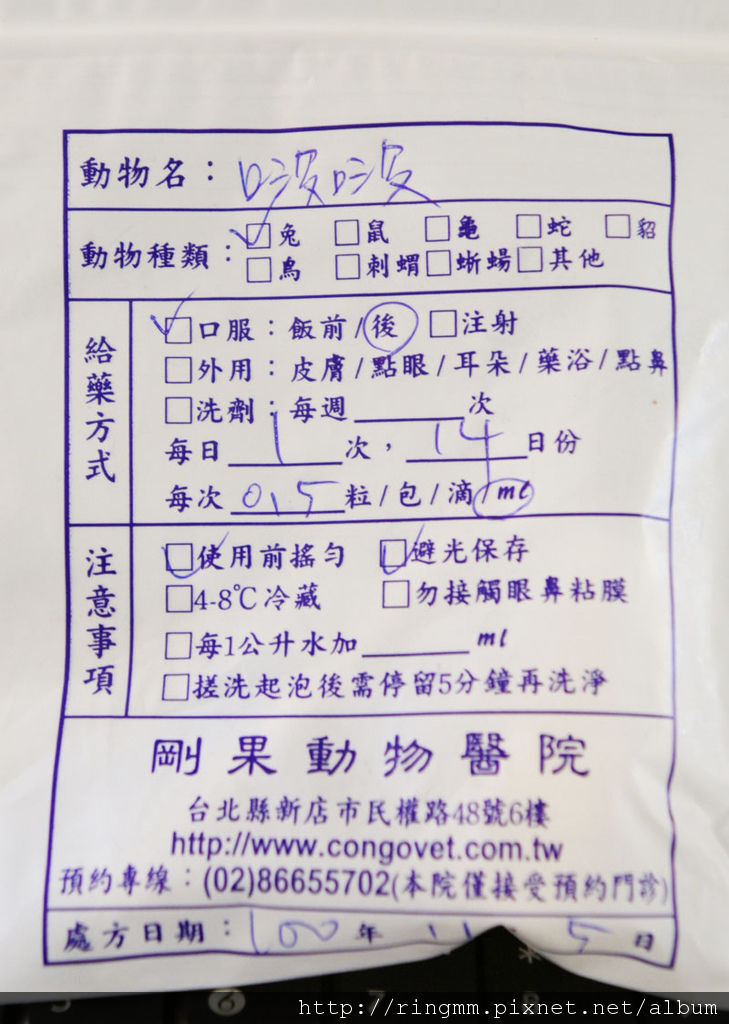 動物名：啵啵
動物種類：☑兔 □鼠 □龜 □蛇 □貂
□鳥 □刺蝟 □蜥蜴 □其他
給藥方式
☑口服：飯前/後 □注射
□外用：皮膚/點眼/耳朵/藥浴/點鼻
□洗劑：每週______次
每日 1 次，14 日份
每次 0.5 粒/包/滴/ml
注意事項
☑使用前搖勻 ☑避光保存
□4-8℃冷藏 □勿接觸眼鼻粘膜
□每1公升水加______ml
□搓洗起泡後需停留5分鐘再洗淨
剛果動物醫院
台北縣新店市民權路48號6樓
http://www.congovet.com.tw
預約專線：(02)86655702(本院僅接受預約門診)
處方日期：100年 11 5日
http://ringmm.pixnet.net/album